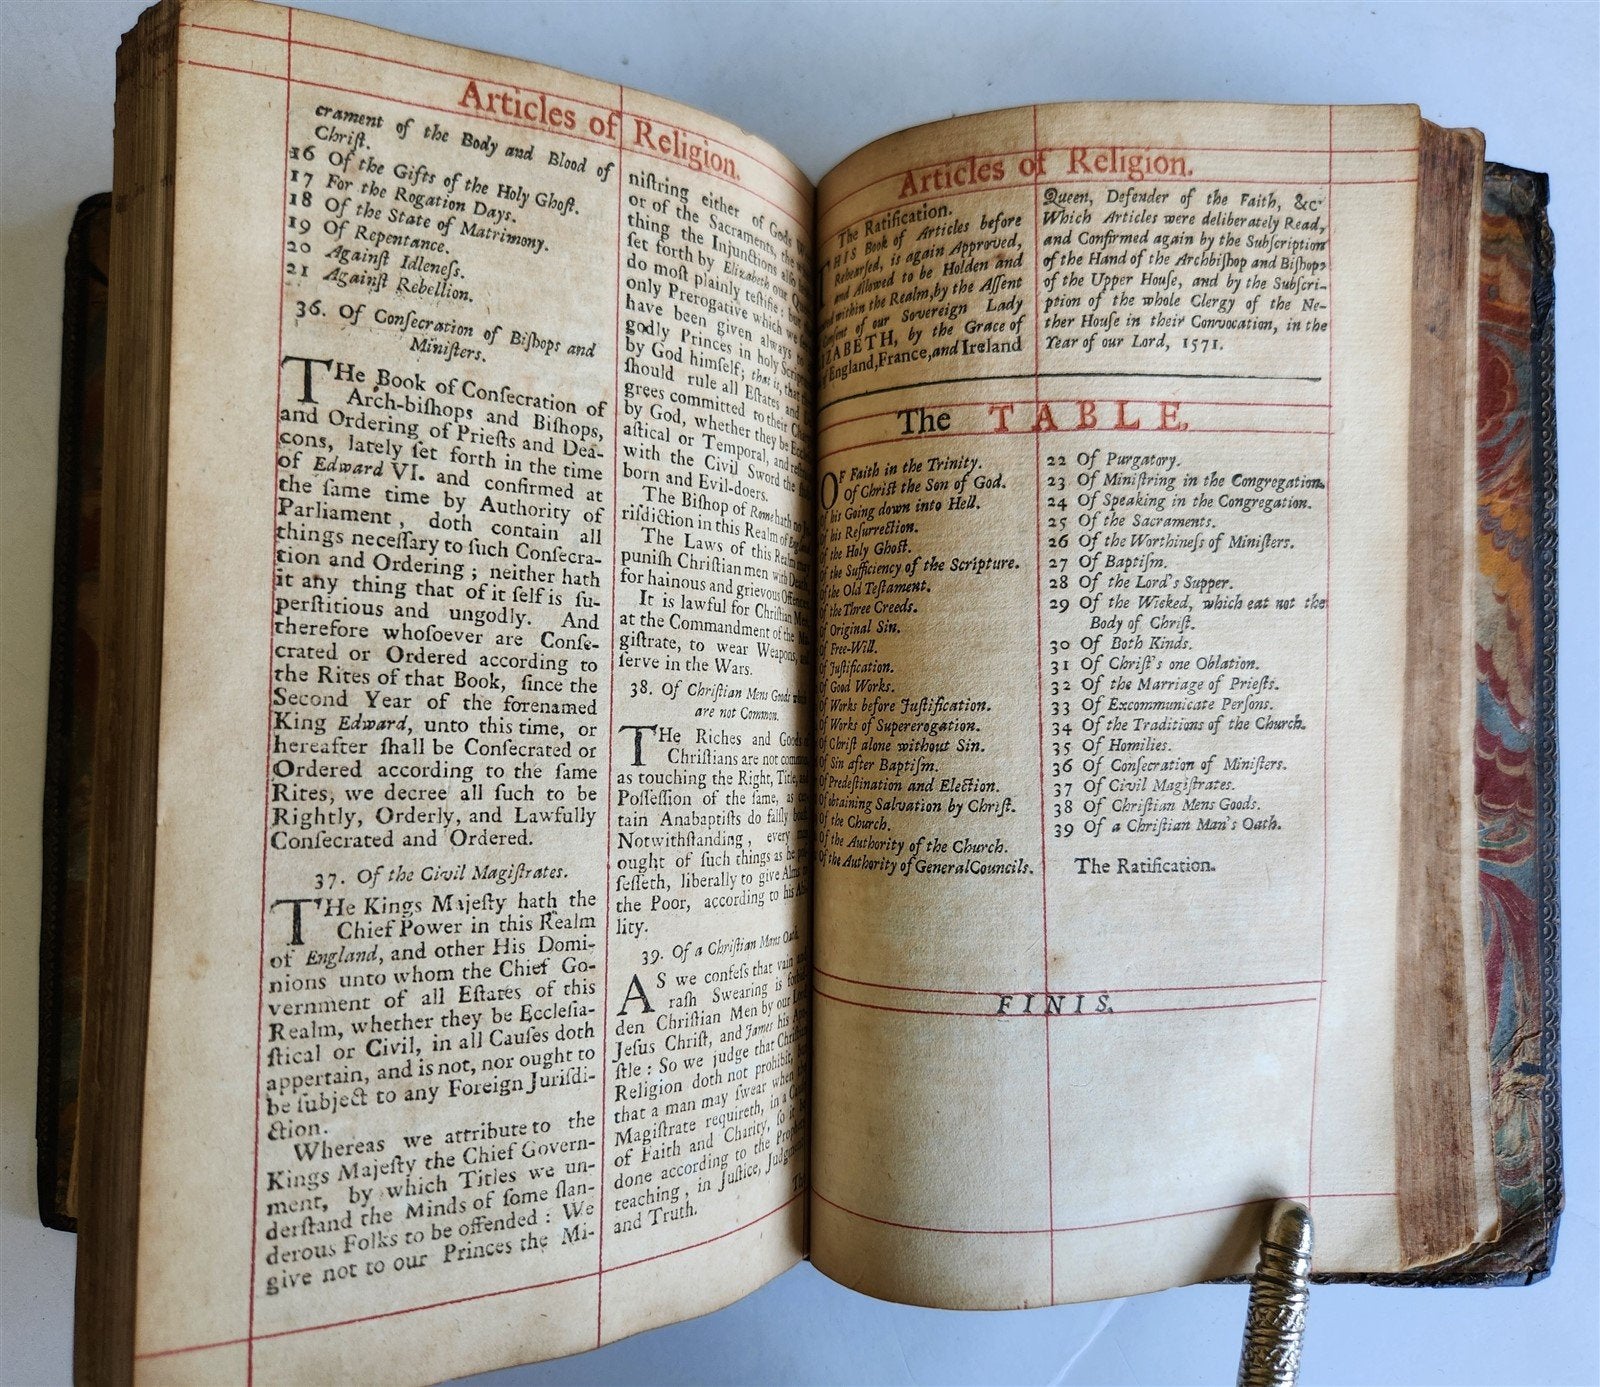 Articles of Religion.
crament of the Body and Blood of
Chriſt.
16 Of the Gifts of the Holy Ghoſt.
17 For the Rogation Days.
18 Of the State of Matrimony.
19 Of Repentance.
20 Againſt Idleneſs.
21 Againſt Rebellion.
36. Of Conſecration of Biſhops and
Miniſters.
THe Book of Conſecration of
Arch-biſhops and Biſhops,
and Ordering of Prieſts and Dea-
cons, lately ſet forth in the time
of Edward VI. and confirmed at
the ſame time by Authority of
Parliament, doth contain all
things neceſſary to ſuch Conſecra-
tion and Ordering; neither hath
it any thing that of it ſelf is ſu-
perſtitious and ungodly. And
therefore whoſoever are Conſe-
crated or Ordered according to
the Rites of that Book, ſince the
Second Year of the forenamed
King Edward, unto this time, or
hereafter ſhall be Conſecrated or
Ordered according to the ſame
Rites, we decree all ſuch to be
Rightly, Orderly, and Lawfully
Conſecrated and Ordered.
37. Of the Civil Magiſtrates.
THe Kings Majeſty hath the
Chief Power in this Realm
of England, and other His Domi-
nions unto whom the Chief Go-
vernment of all Eſtates of this
Realm, whether they be Eccleſia-
ſtical or Civil, in all Cauſes doth
appertain, and is not, nor ought to
be ſubject to any Foreign Juriſdi-
ction.
Whereas we attribute to the
Kings Majeſty the Chief Govern-
ment, by which Titles we un-
derſtand the Minds of ſome ſlan-
derous Folks to be offended: We
give not to our Princes the Mi-
niſtring either of Gods
or of the Sacraments, the
thing the Injunctions alſo
ſet forth by Elizabeth our
do moſt plainly teſtifie: but
only Prerogative which we
have been given always to
godly Princes in holy
by God himſelf; that is, that
ſhould rule all Eſtates and
grees committed to their
by God, whether they be
aſtical or Temporal, and
with the Civil Sword the
born and Evil-doers.
The Biſhop of Rome hath no
riſdiction in this Realm of
The Laws of this Realm may
puniſh Chriſtian men with Death,
for hainous and grievous
It is lawful for Chriſtian
at the Commandment of the
giſtrate, to wear Weapons,
ſerve in the Wars.
38. Of Chriſtian Mens Goods which
are not Common.
THe Riches and Goods
Chriſtians are not
as touching the Right, Title,
Poſſeſſion of the ſame, as
tain Anabaptiſts do falſly
Notwithſtanding, every
ought of ſuch things as he
ſeſſeth, liberally to give Alms
the Poor, according to his
lity.
39. Of a Chriſtian Mans Oath.
AS we confeſs that vain
raſh Swearing is
den Chriſtian Men by our
Jeſus Chriſt, and James his
ſtle: So we judge that
Religion doth not prohibit,
that a man may ſwear when
Magiſtrate requireth, in a
of Faith and Charity, ſo it
done according to the
teaching, in Juſtice,
and Truth.
Articles of Religion.
The Ratification.
HIS Book of Articles before
Rehearſed, is again Approved,
and Allowed to be Holden and
within the Realm, by the Aſſent
of our Sovereign Lady
by the Grace of
England, France, and Ireland
Queen, Defender of the Faith, &c.
Which Articles were deliberately Read,
and Confirmed again by the Subſcription
of the Hand of the Archbiſhop and Biſhops
of the Upper Houſe, and by the Subſcri-
ption of the whole Clergy of the Ne-
ther Houſe in their Convocation, in the
Year of our Lord, 1571.
The TABLE.
OF Faith in the Trinity.
Of Chriſt the Son of God.
Of his Going down into Hell.
Of his Reſurrection.
Of the Holy Ghoſt.
Of the Sufficiency of the Scripture.
Of the Old Teſtament.
Of the Three Creeds.
Of Original Sin.
Of Free-Will.
Of Juſtification.
Of Good Works.
Of Works before Juſtification.
Of Works of Supererogation.
Of Chriſt alone without Sin.
Of Sin after Baptiſm.
Of Predeſtination and Election.
Of obtaining Salvation by Chriſt.
Of the Church.
Of the Authority of the Church.
Of the Authority of General Councils.
22 Of Purgatory.
23 Of Miniſtring in the Congregation.
24 Of Speaking in the Congregation.
25 Of the Sacraments.
26 Of the Worthineſs of Miniſters.
27 Of Baptiſm.
28 Of the Lord's Supper.
29 Of the Wicked, which eat not the
Body of Chriſt.
30 Of Both Kinds.
31 Of Chriſt's one Oblation.
32 Of the Marriage of Prieſts.
33 Of Excommunicate Perſons.
34 Of the Traditions of the Church.
35 Of Homilies.
36 Of Conſecration of Miniſters.
37 Of Civil Magiſtrates.
38 Of Chriſtian Mens Goods.
39 Of a Chriſtian Man's Oath.
The Ratification.
FINIS.